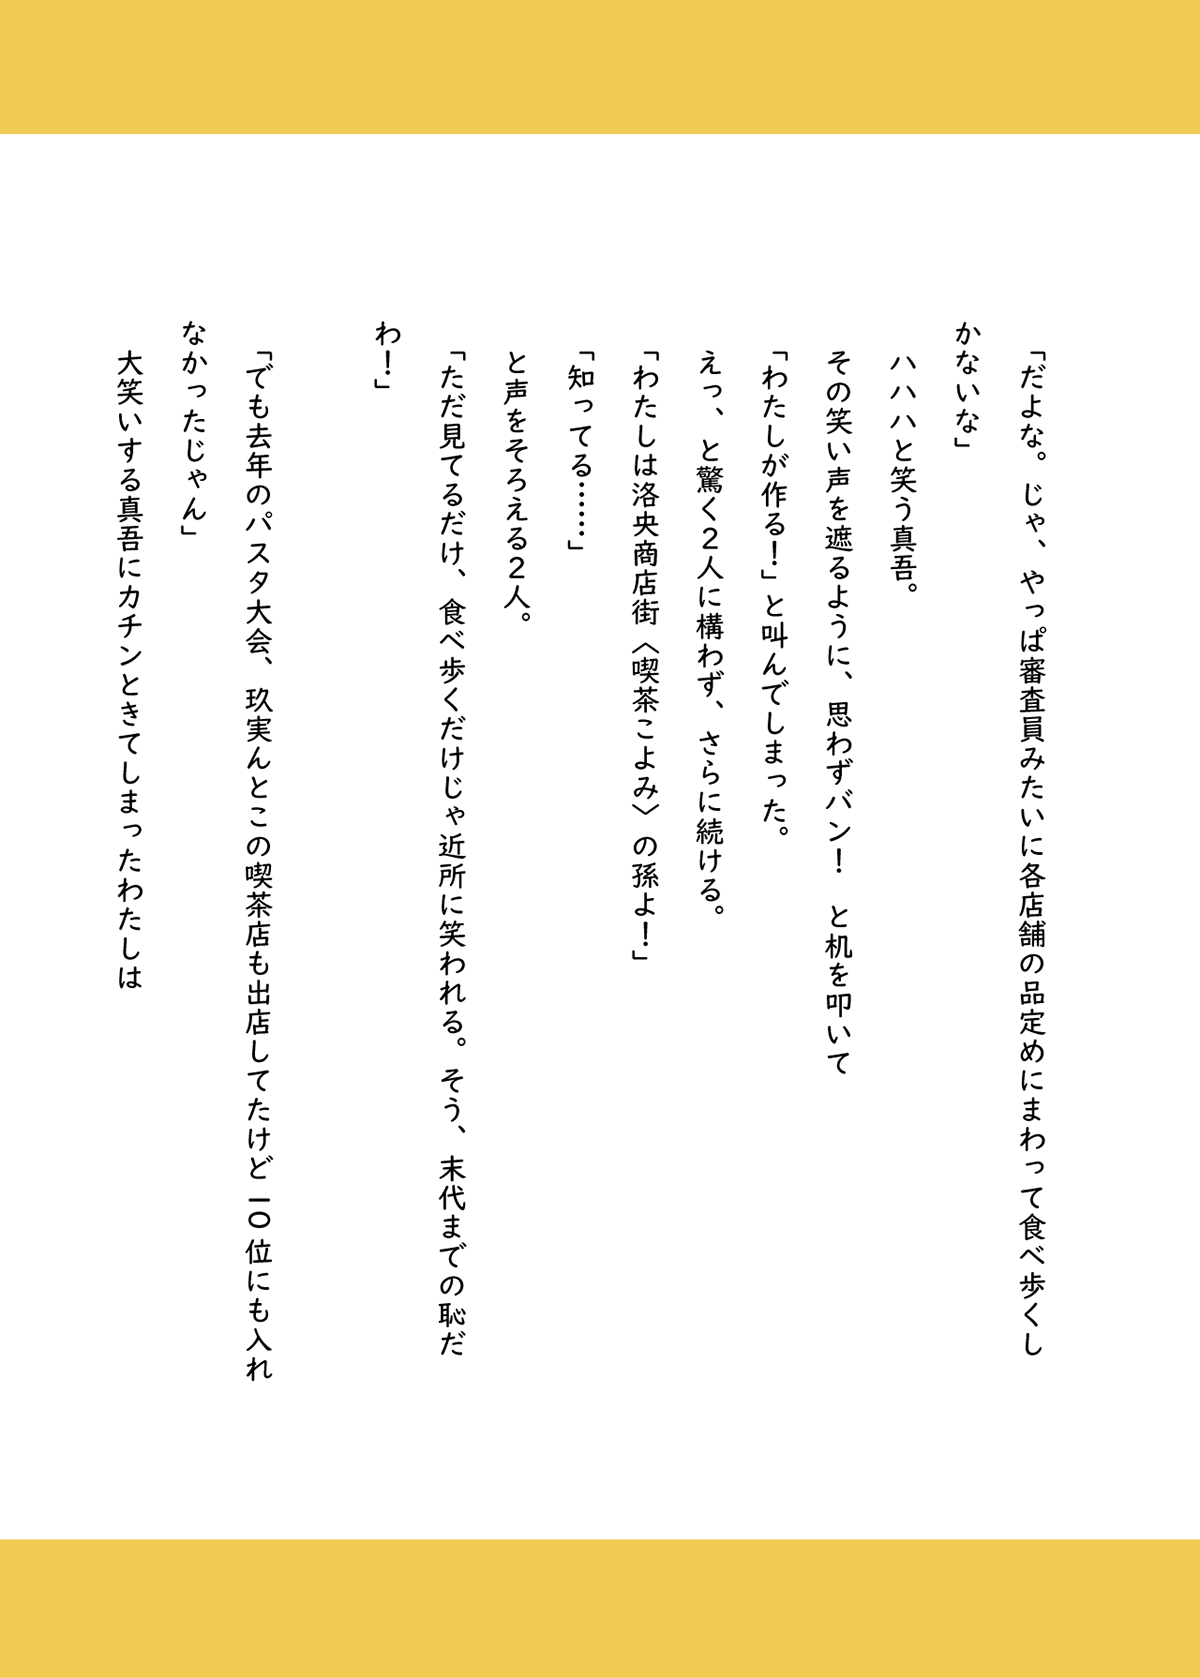 「だよな。じゃ、やっぱ審査員みたいに各店舗の品定めにまわって食べ歩くし
かないな」
ハハハと笑う真吾。
その笑い声を遮るように、思わずバン！　と机を叩いて
「わたしが作る！」と叫んでしまった。
えっ、と驚く２人に構わず、さらに続ける。
「わたしは洛央商店街〈喫茶こよみ〉の孫よ！」
「知ってる……」
と声をそろえる２人。
「ただ見てるだけ、食べ歩くだけじゃ近所に笑われる。そう、末代までの恥だ
わ！」
「でも去年のパスタ大会、玖実んとこの喫茶店も出店してたけど一〇位にも入れ
なかったじゃん」
大笑いする真吾にカチンときてしまったわたしは